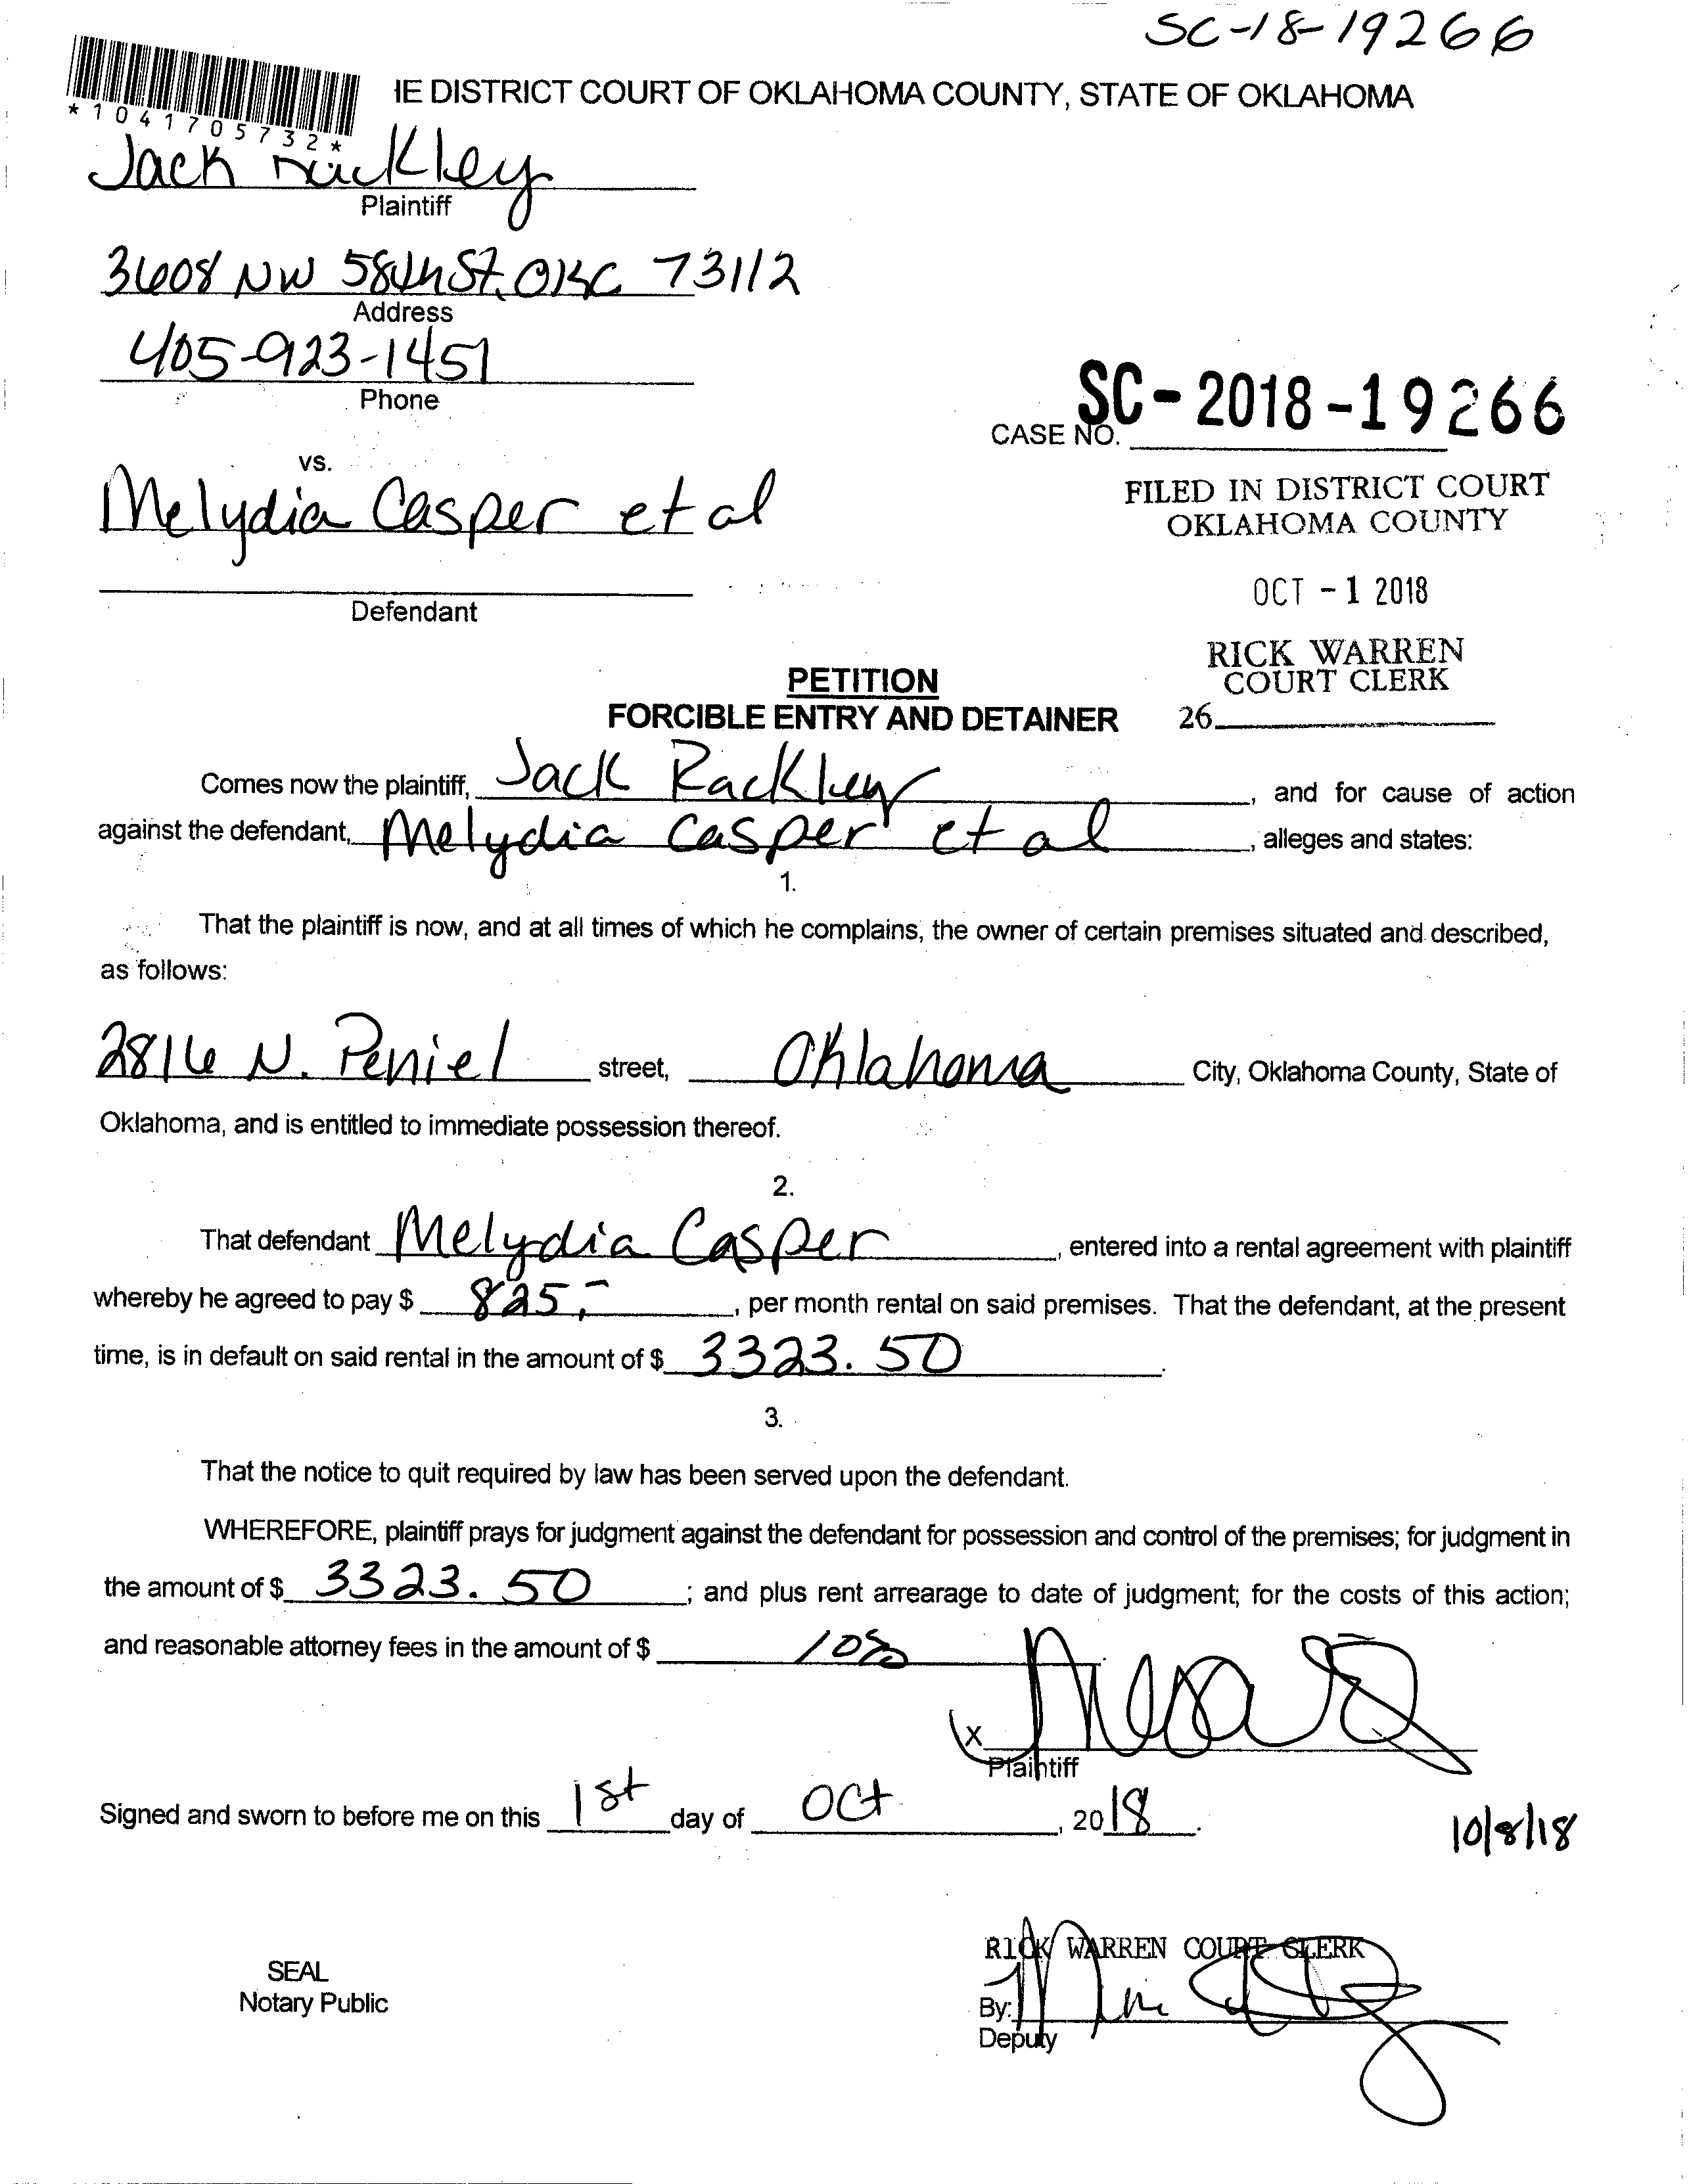 SC-18-19266
IE DISTRICT COURT OF OKLAHOMA COUNTY, STATE OF OKLAHOMA
*1041705732*
Jack Rackley
Plaintiff
3608 NW 58th St. OKC 73112
Address
405-923-1451
Phone
SC-2018-19266
CASE NO.
vs.
Melydia Casper et al
FILED IN DISTRICT COURT
OKLAHOMA COUNTY
OCT - 1 2018
Defendant
RICK WARREN
COURT CLERK
PETITION
FORCIBLE ENTRY AND DETAINER
26
Comes now the plaintiff, Jack Rackley, and for cause of action
against the defendant, Melydia Casper et al, alleges and states:
1.
That the plaintiff is now, and at all times of which he complains, the owner of certain premises situated and described,
as follows:
2816 N. Peniel street, Oklahoma City, Oklahoma County, State of
Oklahoma, and is entitled to immediate possession thereof.
2.
That defendant Melydia Casper, entered into a rental agreement with plaintiff
whereby he agreed to pay $ 825.-, per month rental on said premises. That the defendant, at the present
time, is in default on said rental in the amount of $ 3323.50.
3.
That the notice to quit required by law has been served upon the defendant.
WHEREFORE, plaintiff prays for judgment against the defendant for possession and control of the premises; for judgment in
the amount of $ 3323.50; and plus rent arrearage to date of judgment; for the costs of this action;
and reasonable attorney fees in the amount of $ 10%.
x
Plaintiff
Signed and sworn to before me on this 1st day of Oct, 2018.
10/8/18
RICK WARREN COURT CLERK
SEAL
Notary Public
By:
Deputy